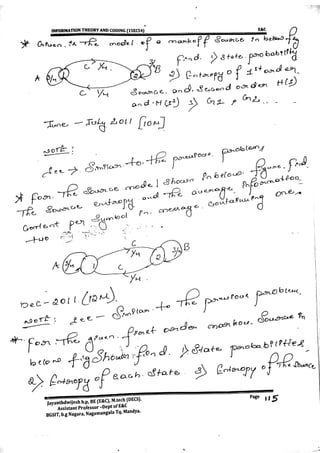 INFORMATION THEORY AND CODING (15EC54) E&C
* Given in the model of a markoff Source in below fig
find. 1) State probability
2) Entropy of 1st order
Source. and. Second order H(S)
and H(S²) 3) G1 & G2
C 1/4
A 3/4 1 2 3/4 B
C 1/4
June - July 2011 [10M]
NOTE:
See → Similar to the previous problem
* For. The Source model shown in below figure, find
The Source entropy and the average information
Content per Symbol in message Containing one,
two
C 1/4
A 3/4 1 2 3/4 B
C 1/4
Dec - 2011 (12M)
NOTE: See - Similar to The previous problem.
* For The given first order markov. Source in
below fig shown find. 1) State probabilities
2) Entropy of each State 3) Entropy of The Source
Jayanthdwijesh h.p, BE (E&C), M.tech (DECS).
Assistant Professor - Dept of E&C
BGSIT, b.g Nagara, Nagamangala Tq, Mandya.
Page 115